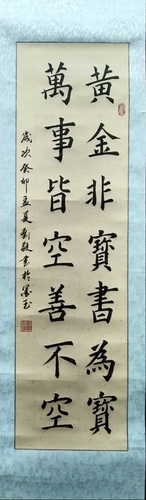 黃金非寶書為寶
萬事皆空善不空
歲次癸卯孟夏劉敬書於墨玉